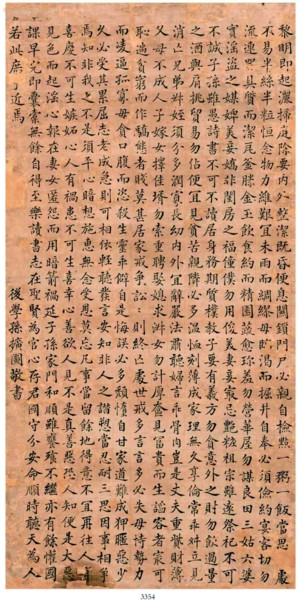 黎明即起灑掃庭除要內外整潔既昏便息關鎖門戶必親自檢點一粥一飯當思來處
不易半絲半粒恒念物力維艱宜未雨而綢繆毋臨渴而掘井自奉必須儉約宴客切勿
流連器具質而潔瓦缶勝金玉飲食約而精園蔬愈珍羞勿營華屋勿謀良田三姑六婆
實淫盜之媒婢美妾嬌非閨房之福僮僕勿用俊美妻妾最忌艷粧祖宗雖遠祭祀不可
不誠子孫雖愚詩書不可不讀居身務期質樸教子要有義方勿貪意外之財勿飲過量
之酒與肩挑貿易勿佔便宜見貧苦親鄰必多溫恤刻薄成家理無久享倫常乖舛立見
消亡兄弟叔姪須分多潤寡長幼內外宜辭嚴法肅聽婦言乖骨肉豈是丈夫重貲財薄
父母不成人子嫁女擇佳壻勿索重聘娶媳求淑女勿計厚奩見富貴而生諂容者最可
恥遇貧窮而作驕態者賤莫甚居家戒爭訟訟則終凶處世戒多言言多必失毋恃勢力
而凌逼孤寡毋貪口腹而恣殺生靈乖僻自是悔誤必多頹惰自甘家道難成狎暱惡少
久必受其累屈志老成急則可相依輕聽發言安知非人之譖愬當忍耐三思因事相爭
焉知非我之不是須平心暗想施惠無念受恩莫忘凡事當留餘地得意不宜再往人有
喜慶不可生嫉妬心人有禍患不可生喜幸心善欲人見不是真善惡恐人知便是大惡
見色而起淫心報在妻女匿怨而用暗箭禍延子孫家門和順雖饔飧不繼亦有餘懽國
課早完即囊橐無餘自得至樂讀書志在聖賢為官心存君國守分安命順時聽天為人
若此庶乎近焉
後學孫擴圖敬書
3354